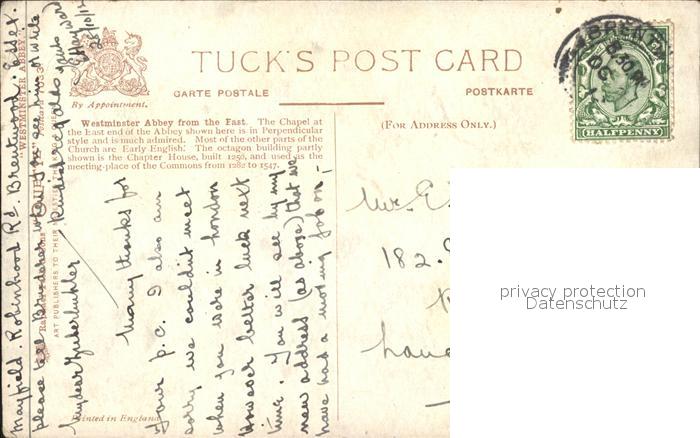 TUCK'S POST CARD
CARTE POSTALE
POSTKARTE
By Appointment.
(FOR ADDRESS ONLY.)
Westminster Abbey from the East. The Chapel at
the East end of the Abbey shown here is in Perpendicular
style and is much admired. Most of the other parts of the
Church are Early English. The octagon building partly
shown is the Chapter House, built 1250, and used as the
meeting-place of the Commons from 1282 to 1547.
"WESTMINSTER ABBEY"
ART PUBLISHERS TO THEIR
Printed in England
HALFPENNY
BRENTW
8.30 PM
OC
Mayfield. Robinhood Rd. Brentwood. Essex.
please tell when you see him or write
Kindest regards yours
28/10/12
My dear
Many thanks for
Your p.c. I also am
sorry we couldn't meet
when you were in London
However better luck next
time. You will see by my
new address (as above) that we
have had a moving job on,
Mr. E
182.
privacy protection
Datenschutz